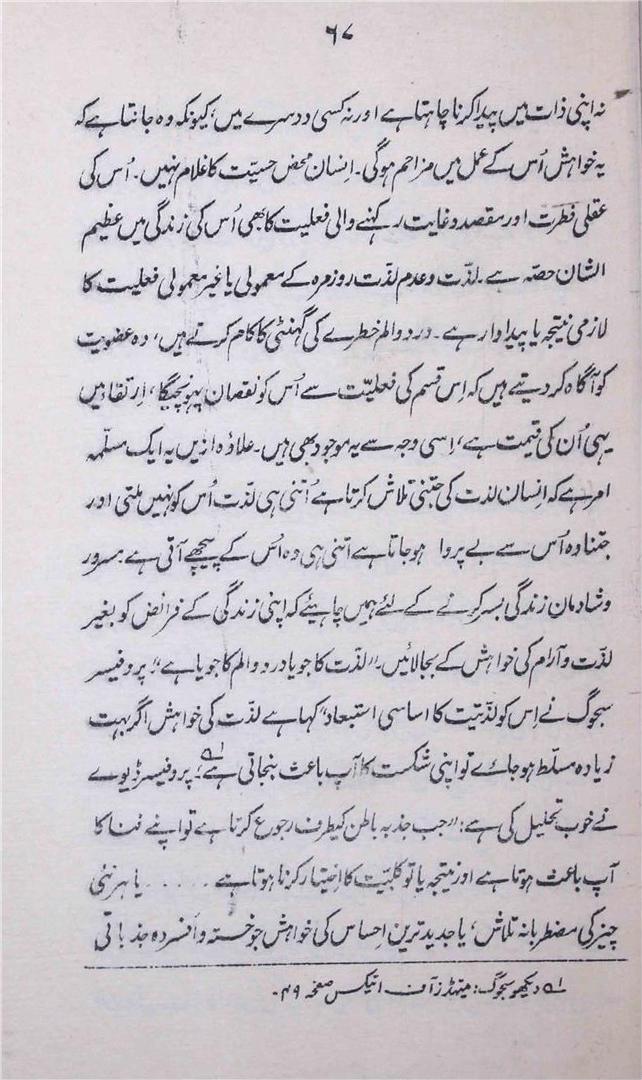 ۶۷
نہ اپنی ذات میں پیدا کرنا چاہتا ہے اور نہ کسی دوسرے میں، کیونکہ وہ جانتا ہے کہ
یہ خواہش اُس کے عمل میں مزاحم ہوگی۔ اِنسان محض حسیّت کا غلام نہیں۔ اُس کی
عقلی فطرت اور مقصد و غایت رکہنے والی فعلیت کا بھی اُس کی زندگی میں عظیم
الشان حصّہ ہے۔ لذّت و عدم لذّت روزمرہ کے معمولی یا غیر معمولی فعلیت کا
لازمی نتیجہ یا پیداوار ہے۔ درد و الم خطرے کی گہنٹی کا کام کرتے ہیں، وہ عضویت
کو آگاہ کر دیتے ہیں کہ اِس قسم کی فعلیّت سے اُس کو نقصان پہونچیگا، اِرتقاء میں
یہی اُن کی قیمت ہے، اِسی وجہ سے یہ موجود بھی ہیں۔ علاوہ ازیں یہ ایک مسلّمہ
امر ہے کہ اِنسان لذت کی جتنی تلاش کرتا ہے اُتنی ہی لذّت اُس کو نہیں ملتی اور
جتنا وہ اُس سے بے پروا ہو جاتا ہے اتنی ہی وہ اُس کے پیچھے آتی ہے۔ مسرور
و شادمان زندگی بسر کرنے کے لئے ہمیں چاہیئے کہ اپنی زندگی کے فرائض کو بغیر
لذّت و آرام کی خواہش کے بجا لائیں۔ "لذّت کا جویا درد و الم کا جویا ہے"؛ پروفیسر
سجوگ نے اِس کو لذّتیت کا اساسی استبعاد" کہا ہے لذّت کی خواہش اگر بہت
زیادہ مسلّط ہو جائے تو اپنی شکست کا آپ باعث بنجاتی ہے؛ ۱؎ پروفیسر ڈیوے
نے خوب تحلیل کی ہے: "جب جذبہ باطن کیطرف رجوع کرتا ہے تو اپنے فنا کا
آپ باعث ہوتا ہے اور نتیجہ یا تو کلبیّت کا اِختیار کرنا ہوتا ہے ..... یا ہر نئی
چیز کی مضطربانہ تلاش، یا جدید ترین اِحساس کی خواہش جو خستہ و افسردہ جذباتی
۱؎ دیکھو سجوگ: میتہڈز آف اتیکس صفحہ ۴۹۔